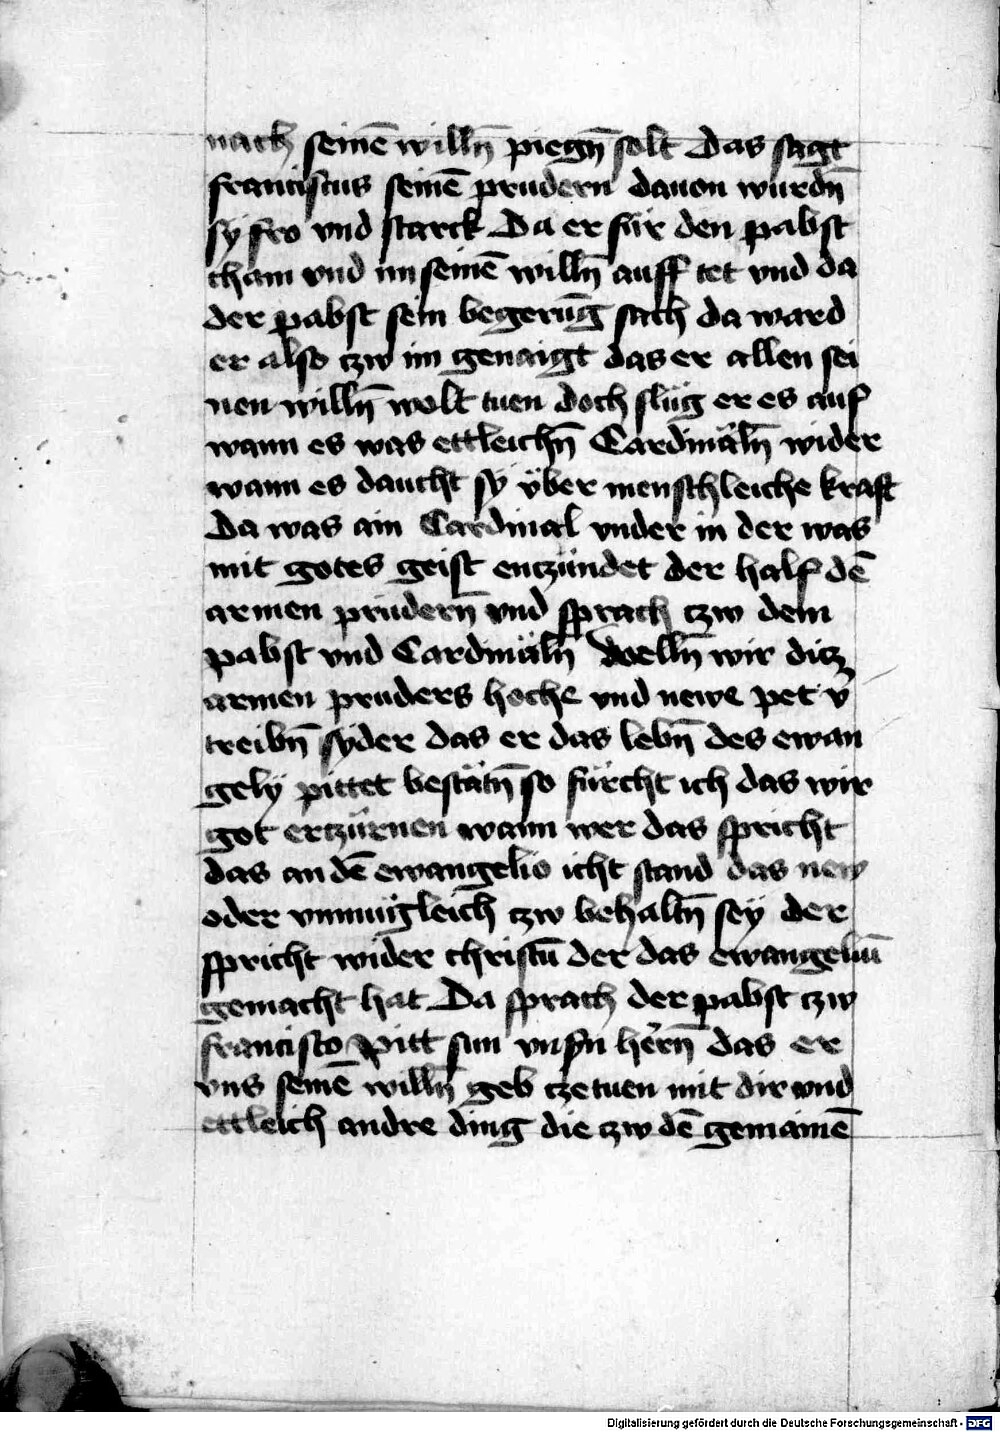 nach seinē willn̄ piegn̄ solt Das sagt
franciscus seinē prudern dauon wurdn̄
sÿ fro vnd starck Da er für den pabst
cham vnd im seinē willn̄ auff tet vnd da
der pabst sein begerūg sach da ward
er also czw im genaigt das er allen sei
nen willn̄ wolt tuen doch slüg er es auf
wann es was ettleichn̄ Cardinäln̄ wider
wann es daucht sÿ über menschleiche kraft
Da was ain Cardinal vnder in der was
mit gotes geist enczündet der half dē
armen prüdern̄ vnd sprach czw dem
pabst vnd Cardinäln̄ Welln̄ wir dicz
armen pruders hoche vnd newe pet v̉
treibn̄ sÿder das er das lebn̄ des ewan
gelÿ pittet bestätn̄ so fürcht ich das wir
got erczürnen wann wer das spricht
das an dē ewangelio icht stand das new
oder vnmügleich czw behaltn̄ seÿ der
spricht wider christū der das ewangeliū
gemacht hat Da sprach der pabst czw
francisco Pitt sun vnsn̄ hern̄ das er
vns seinē willn̄ geb cze tuen mit dir vnd
ettleich andre ding die czw dē gemainē
Digitalisierung gefördert durch die Deutsche Forschungsgemeinschaft - DFG